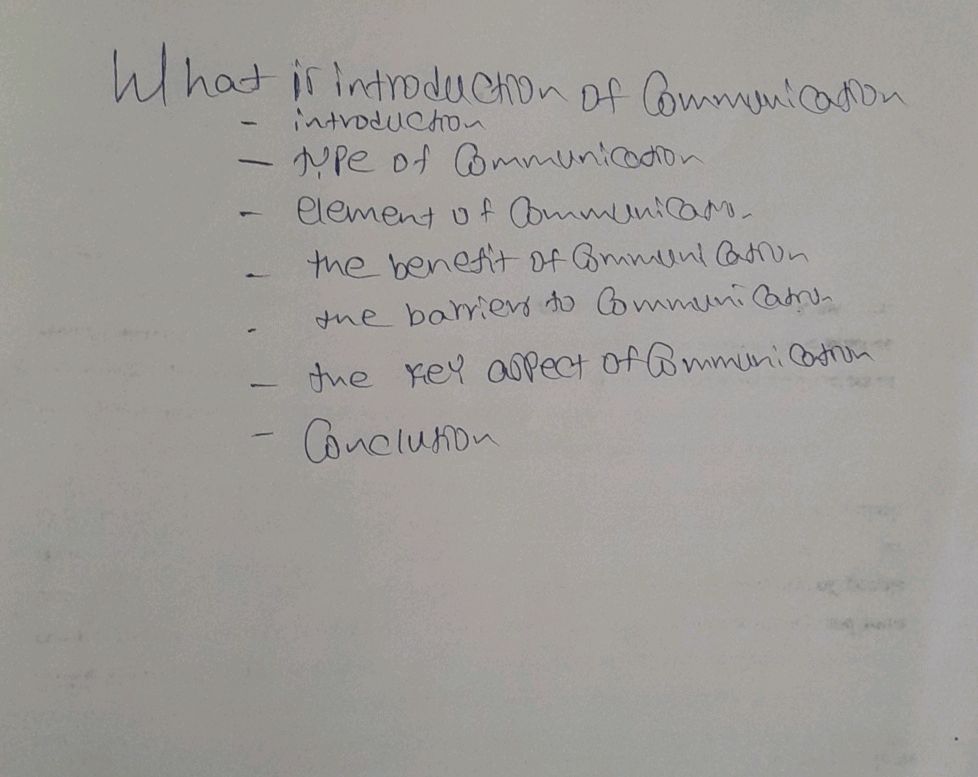 What is introduction of Communication
- introduction
- type of Communication
- element of Communication
- the benefit of Communication
- the barriers to Communication
- the key aspect of Communication
- Conclusion